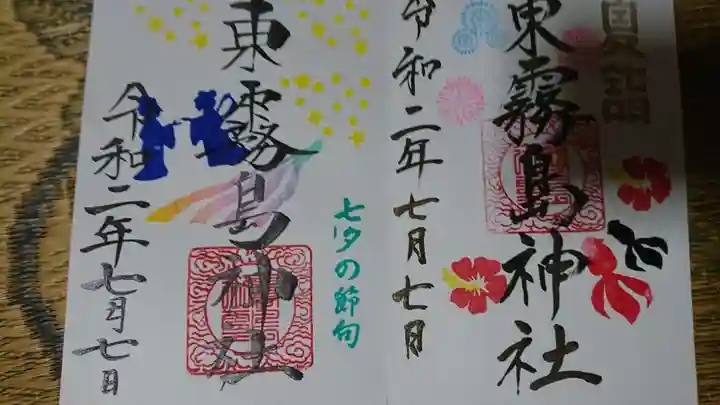 東霧島神社
令和二年七月七日
東霧島神社
七夕の節句
令和二年七月七日